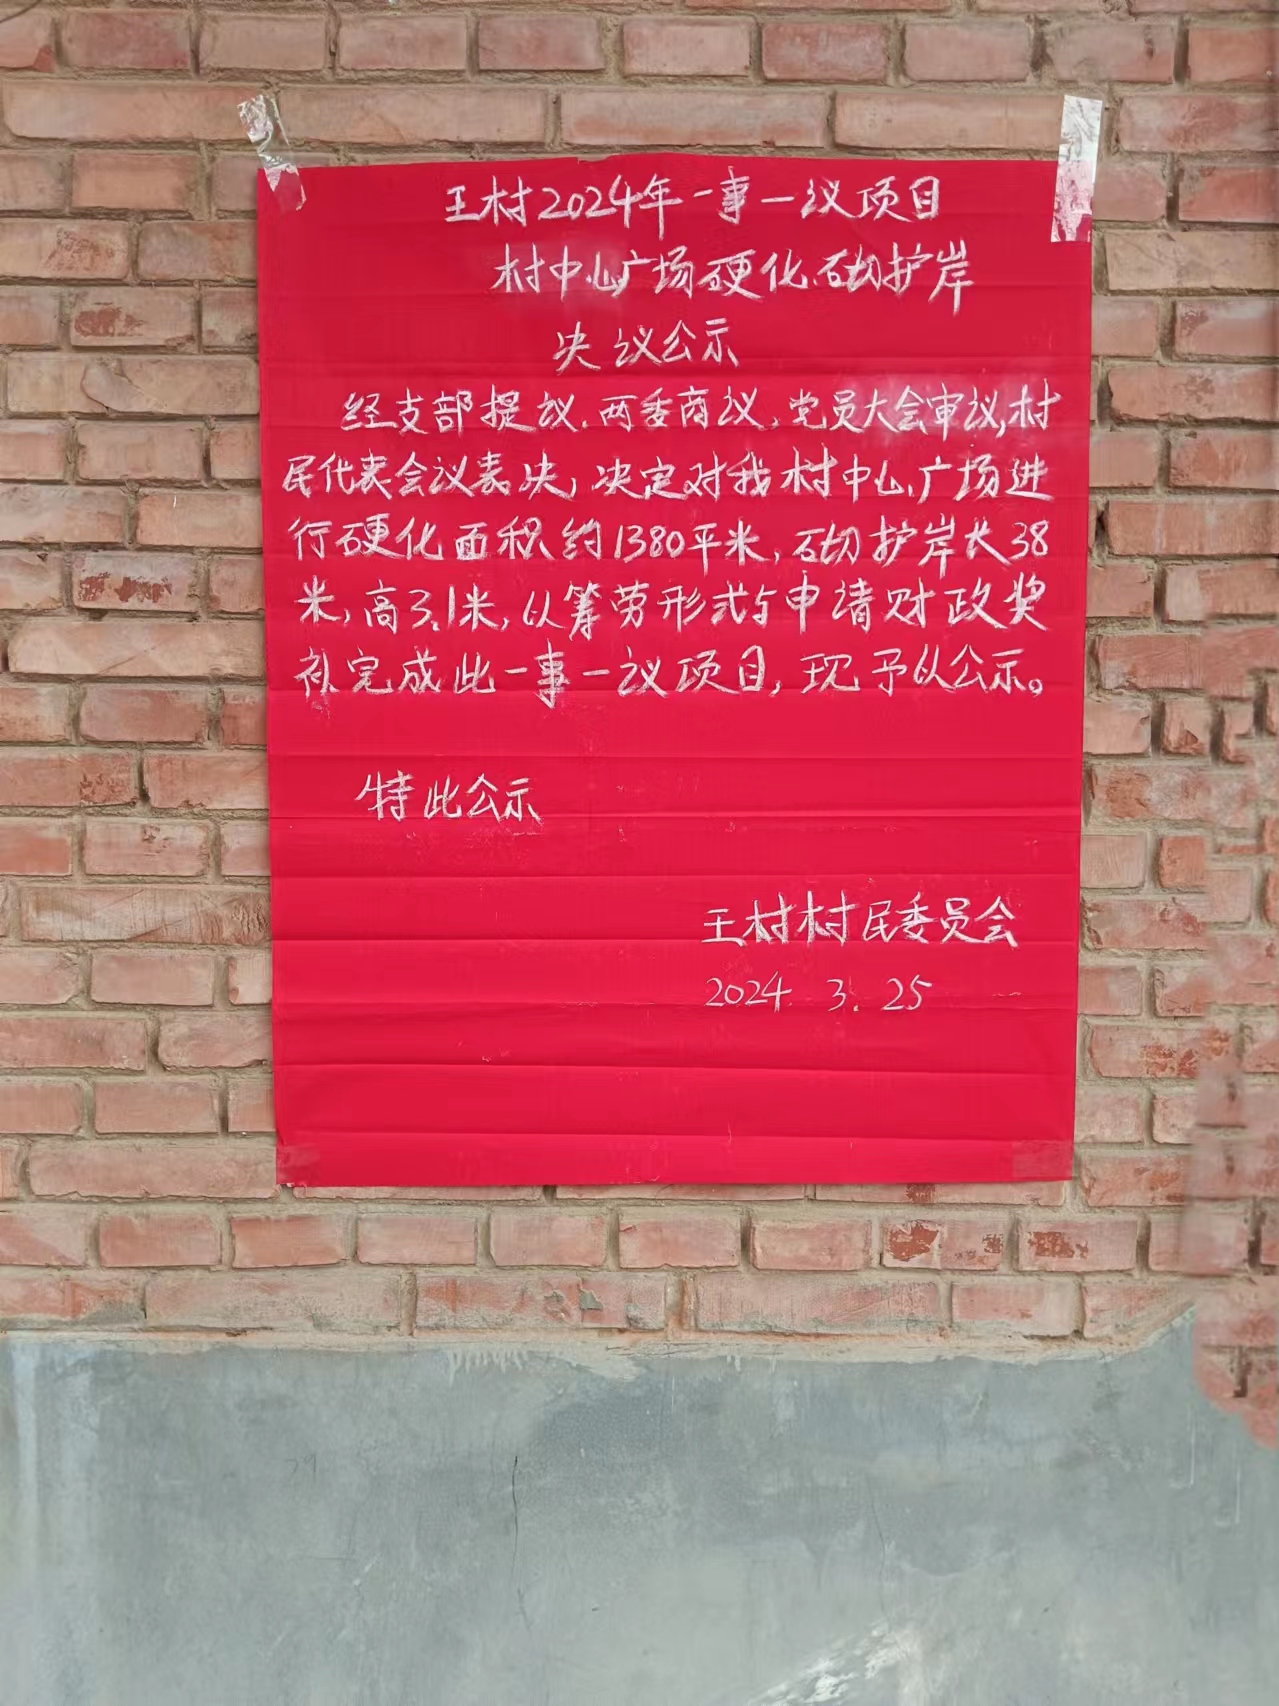 王村2024年一事一议项目
村中心广场硬化砌护岸
决议公示
经支部提议.两委商议,党员大会审议,村
民代表会议表决,决定对我村中心广场进
行硬化面积约1380平米,砌护岸长38
米,高3.1米,以筹劳形式与申请财政奖
补完成此一事一议项目,现予以公示。
特此公示
王村村民委员会
2024.3.25